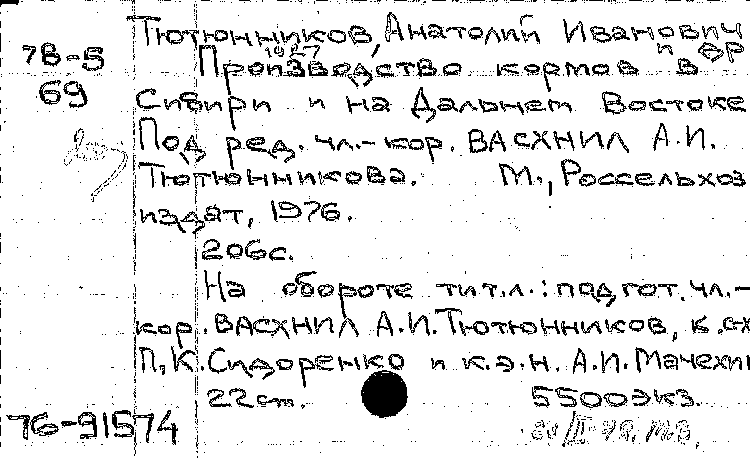 Тютюнников, Анатолий Иванович
1927 и др
78-5 Производство кормов в
69 Сибири и на Дальнем Востоке
Под ред. чл.-кор. ВАСХНИЛ А.И.
Тютюнникова. М., Россельхоз
издат, 1976.
206с.
На обороте тит.л.: подгот. чл.-
кор. ВАСХНИЛ А.И.Тютюнников, к.с-х
П.К.Сидоренко и к.э.н. А.И.Мачехин
22см. 5500экз.
76-91574